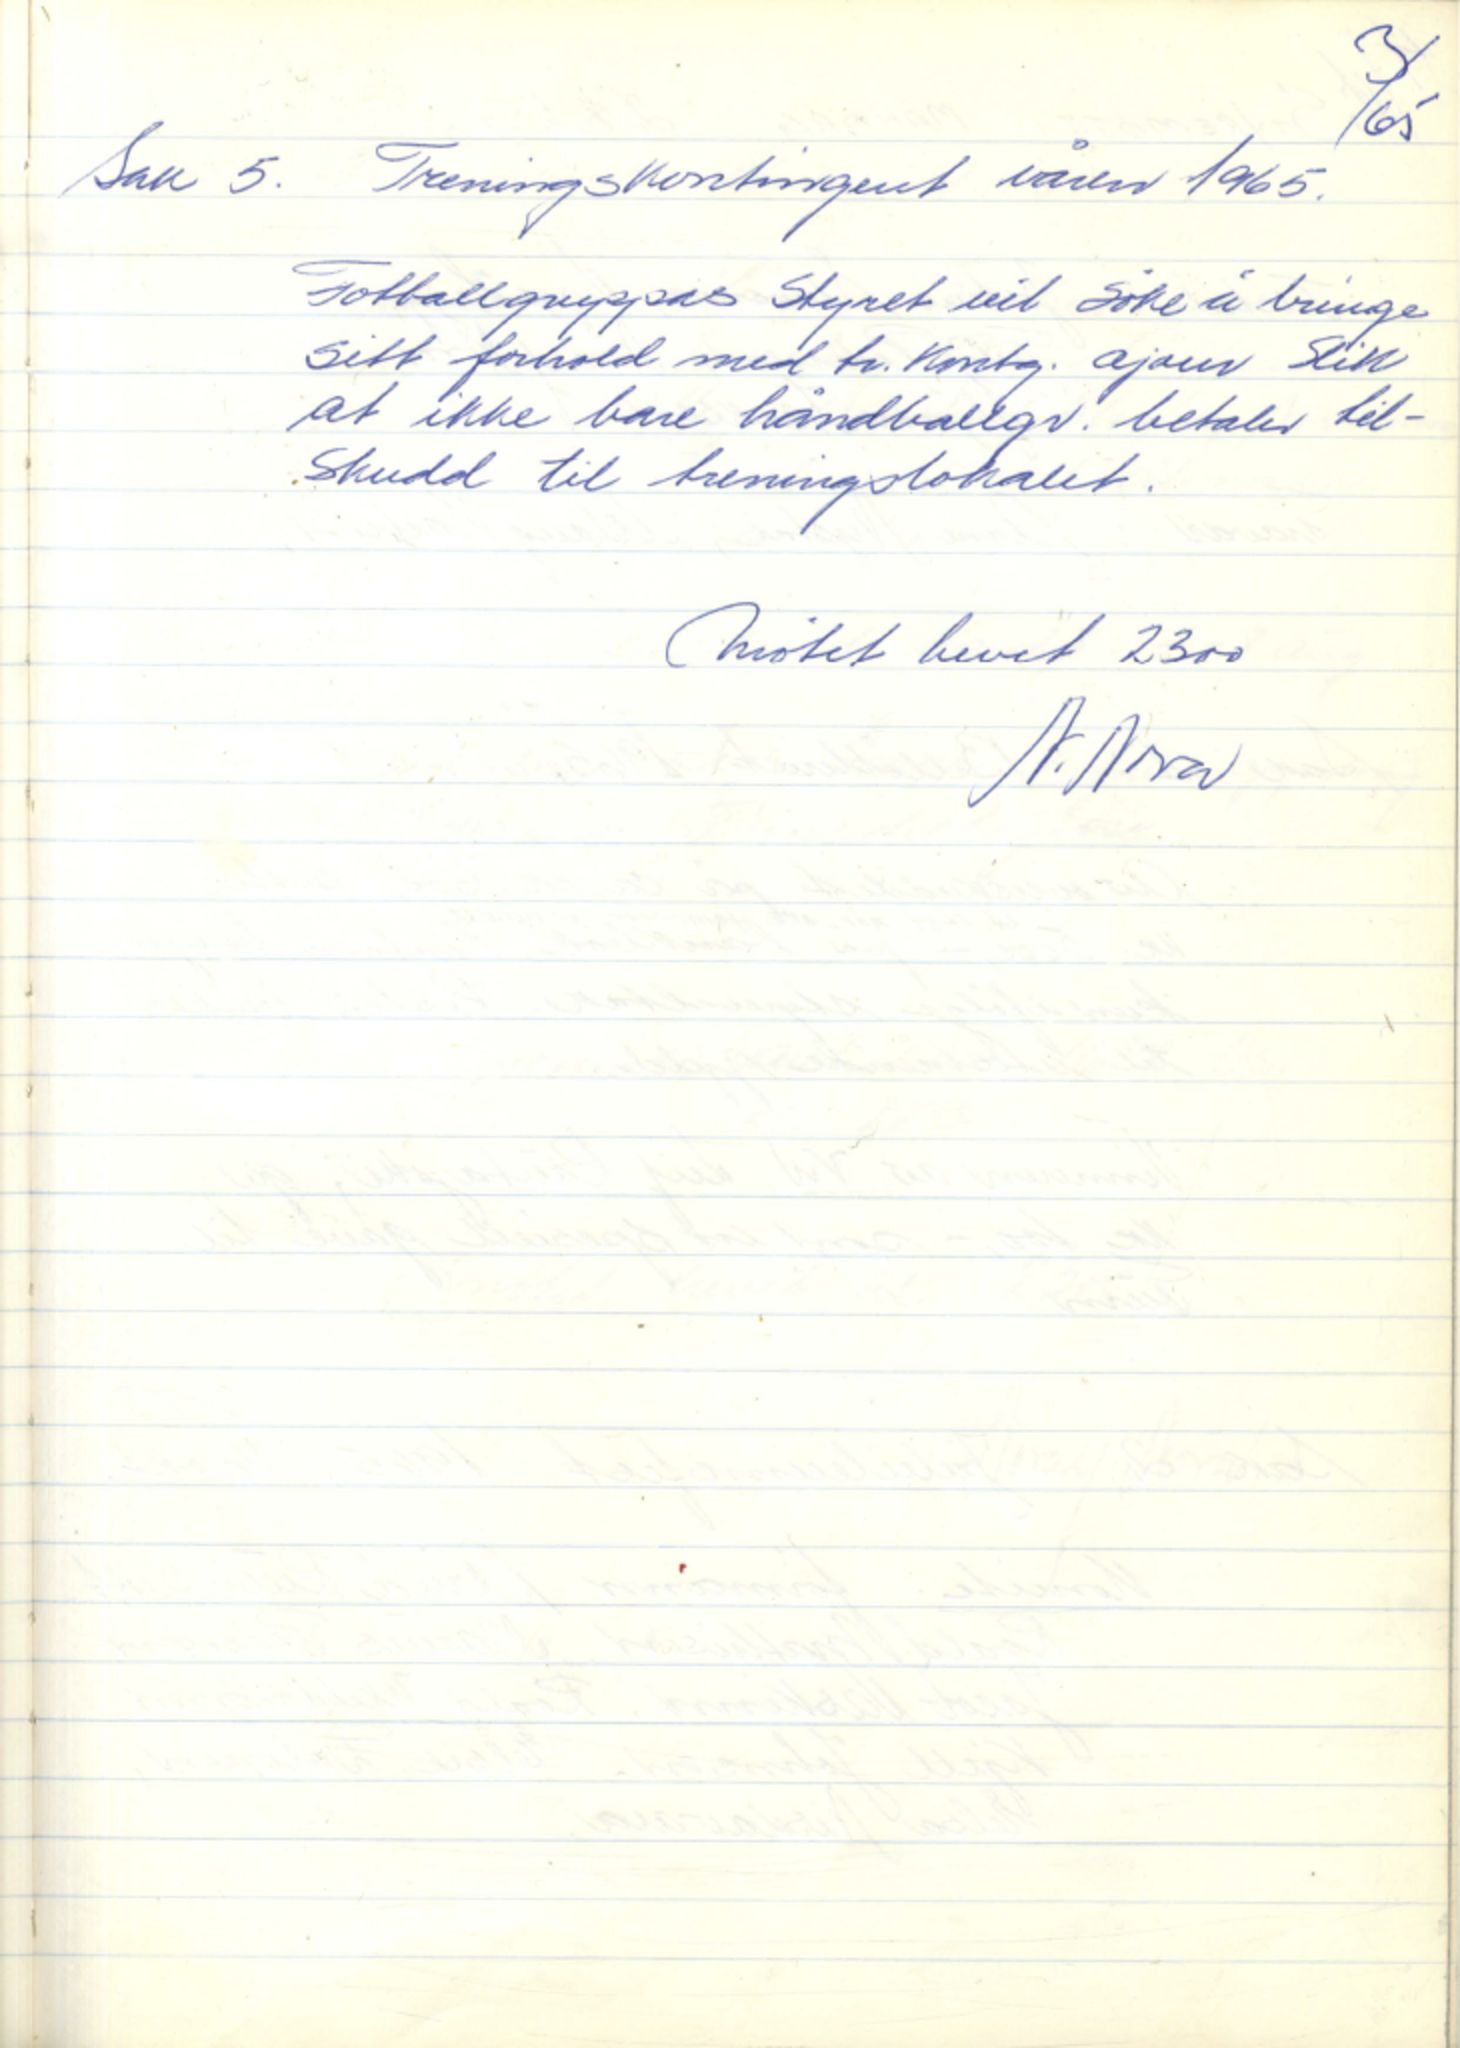 3/65
Sak 5. Treningskontingent våren 1965.
Fotballgruppas Styret vil söke å bringe
sitt forhold med tr. kontg. ajour slik
at ikke bare håndballgr. betaler til-
skudd til treningslokalet.
Mötet hevet 2300